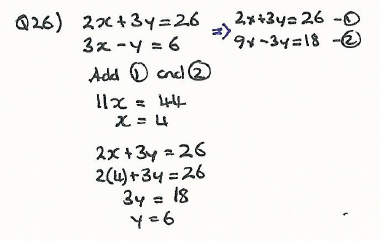 Q26) 2x+3y=26 ⇒ 2x+3y=26 -①
3x-y=6 9x-3y=18 -②
Add ① and ②
11x = 44
x = 4
2x+3y=26
2(4)+3y=26
3y = 18
y=6